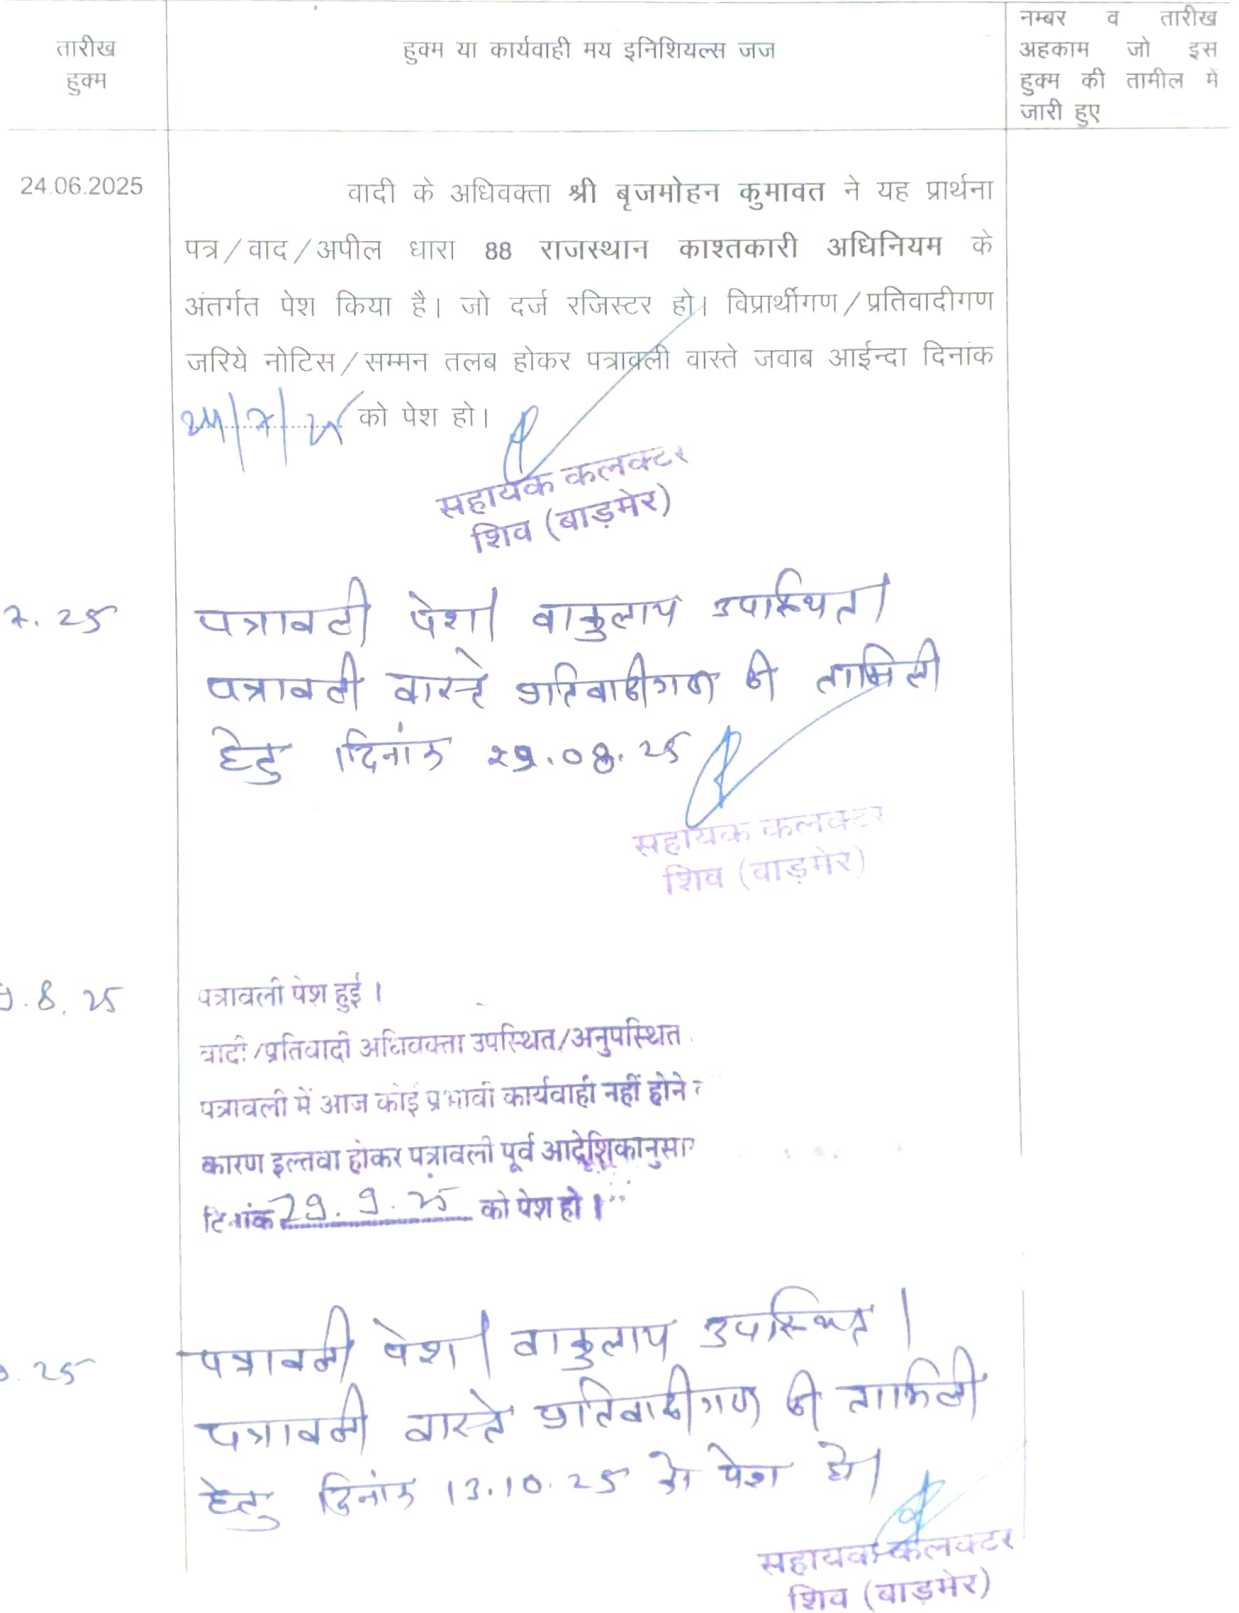 तारीख
हुक्म
हुक्म या कार्यवाही मय इनिशियल्स जज
नम्बर व तारीख
अहकाम जो इस
हुक्म की तामील में
जारी हुए
24.06.2025
वादी के अधिवक्ता श्री बृजमोहन कुमावत ने यह प्रार्थना
पत्र/वाद/अपील धारा 88 राजस्थान काश्तकारी अधिनियम के
अंतर्गत पेश किया है। जो दर्ज रजिस्टर हो। विप्रार्थीगण/प्रतिवादीगण
जरिये नोटिस/सम्मन तलब होकर पत्रावली वास्ते जवाब आईन्दा दिनांक
को पेश हो।
सहायक कलक्टर
शिव (बाड़मेर)
7. 25
पत्रावली पेश। वाकुलाय उपस्थित।
पत्रावली वास्ते प्रतिवादीगण की तामिली
हेतु दिनांक 29.08.25
सहायक कलक्टर
शिव (बाड़मेर)
9.8.25
पत्रावली पेश हुई ।
वादी/प्रतिवादी अधिवक्ता उपस्थित/अनुपस्थित
पत्रावली में आज कोई प्रभावी कार्यवाही नहीं होने
कारण इल्तवा होकर पत्रावली पूर्व आदेशिकानुसार
दिनांक 29.9.25 को पेश हो ।
. 25
पत्रावली पेश। वाकुलाय उपस्थित।
पत्रावली वास्ते प्रतिवादीगण की तामिली
हेतु दिनांक 13.10.25 को पेश हो।
सहायक कलक्टर
शिव (बाड़मेर)